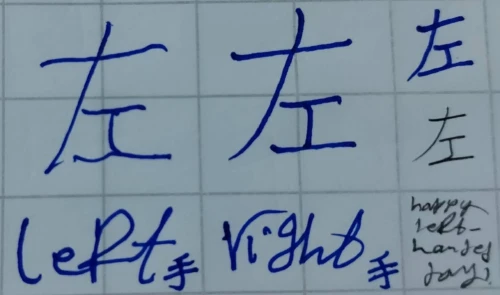 左 左 左
左
left手 right手
happy
left-
handed
day!